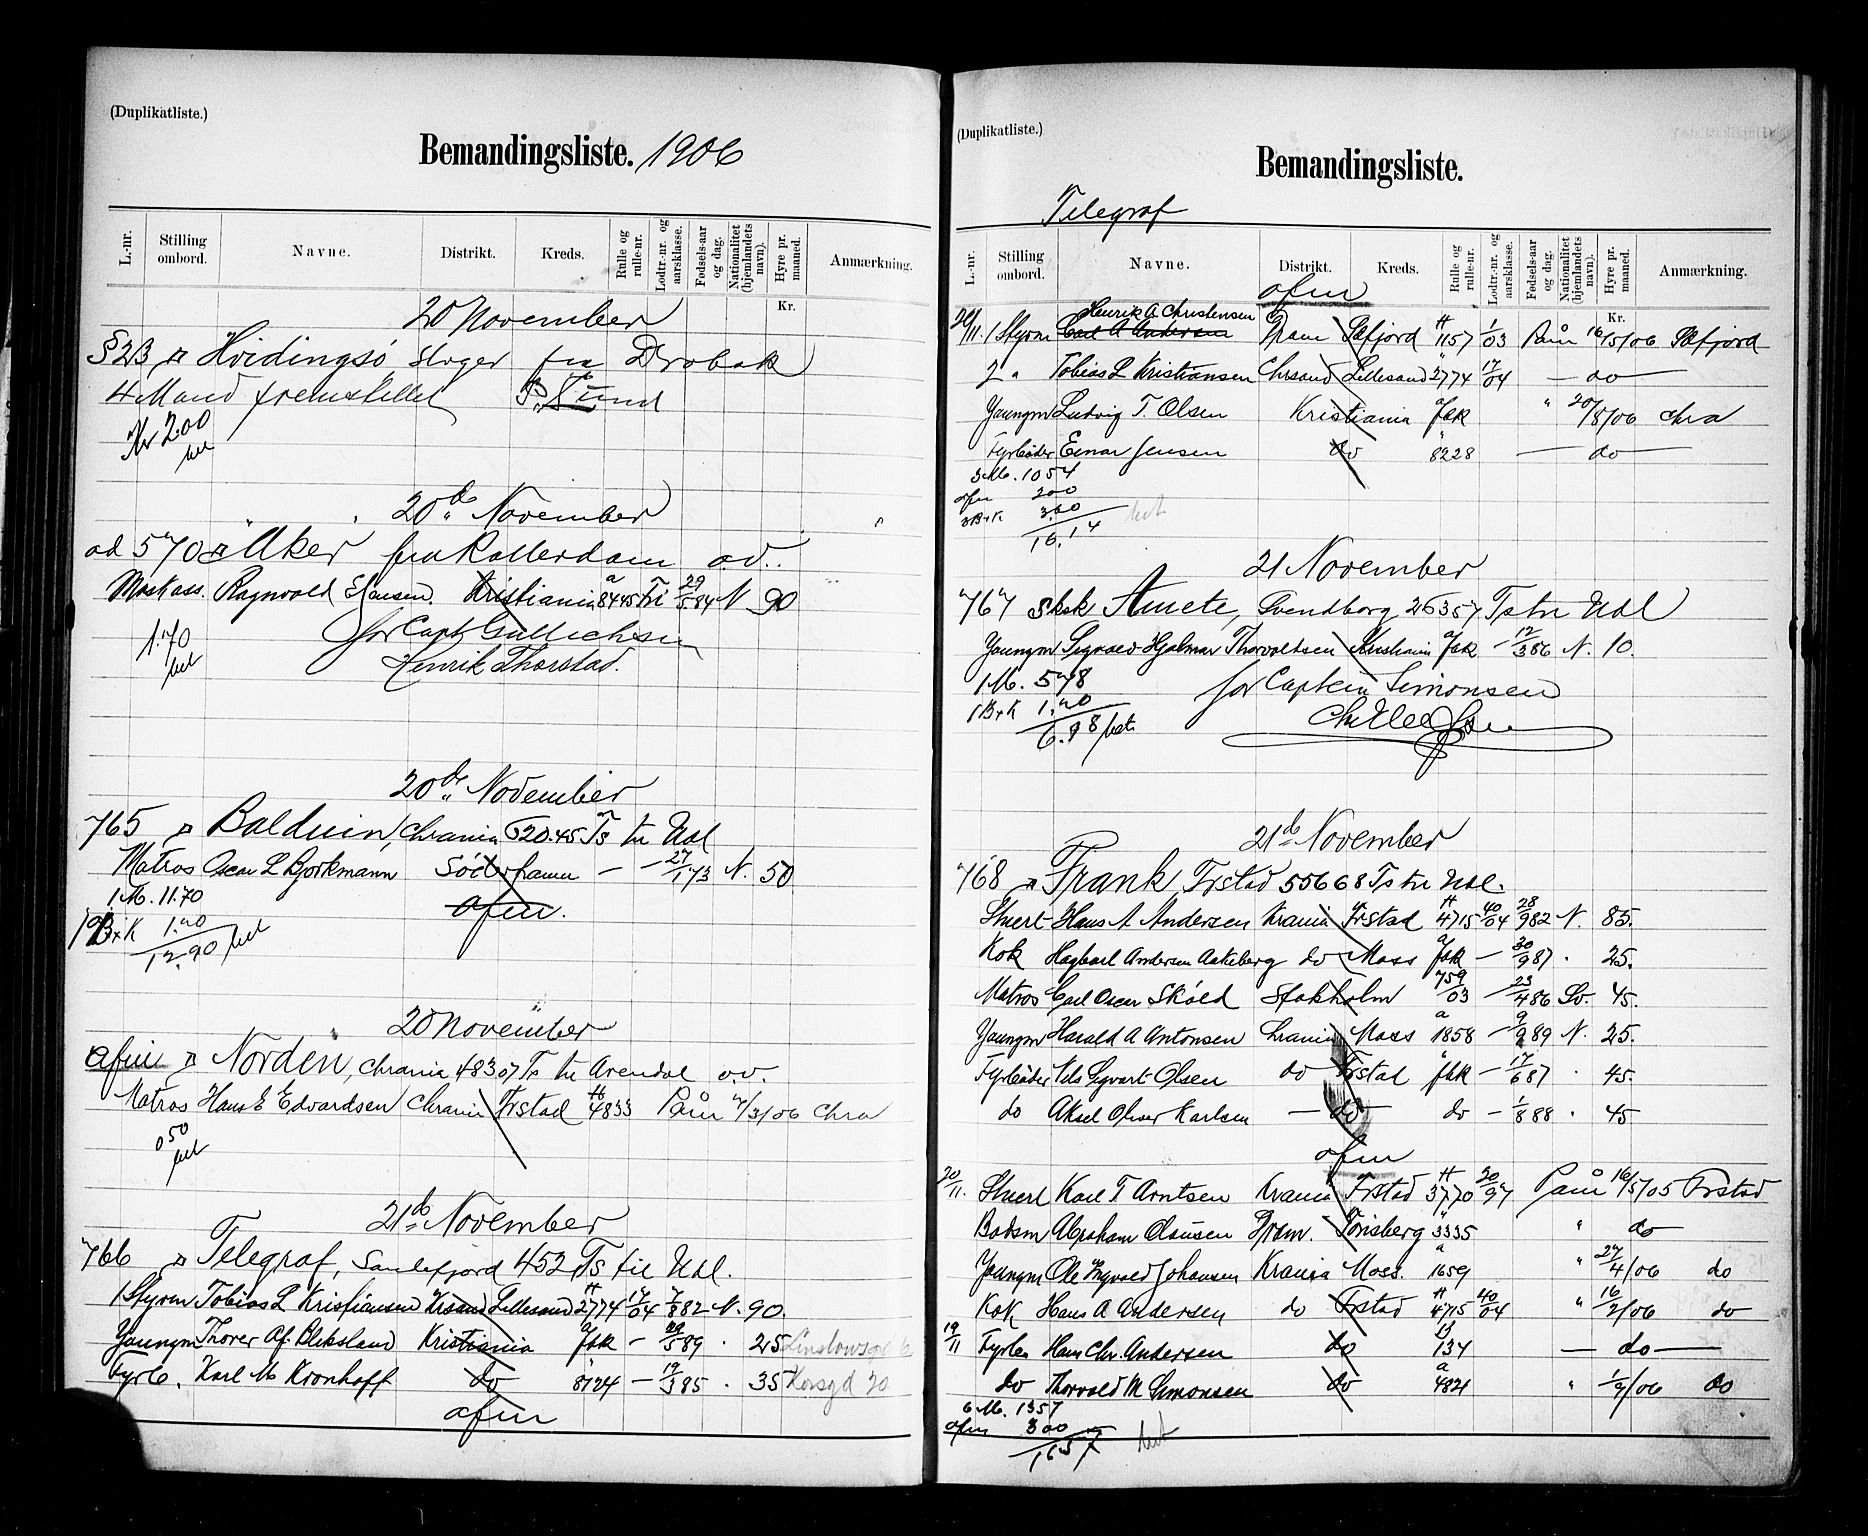 (Duplikatliste.)
Bemandingsliste. 1906
L.-nr. Stilling ombord. Navne. Distrikt. Kreds. Rulle og rulle-nr. Lodtr.-nr. og aarsklasse. Fødsels-aar og dag. Nationalitet (hjemlandets navn). Hyre pr. maaned. Anmærkning.
Kr.
20 November
523 Hvidingsö, sloger fra Drobak
4 Mand fremstillet
Kr 2.00
20de November
ad 570 Aker fra Rotterdam ad.
Mask ass. Ragnvald E Hansen. Kristiania a 8445 Fri 29/5 84 N 90
1.70 for Capt Gullichsen
Henrik Thorstad.
20de November
765 Balduin, Chrania 520.45 Ts til Udl
Matros Oscar L Bjorkmann Söderhamn — — 27/1 73 N. 50
1 M. 11.70 afm.
1 B+K 1.20
12.90 bet
20 November
afm Norden, Chrania 483 07 Ts til Arendal o.v.
Matros Hans E Edvardsen Chrania Frstad H 4833 Paam 7/3/06 Chra
0 50
bet
21de November
766 Telegraf, Sandefjord 452 Ts til Udl.
1 Styrm Tobias L Kristiansen Krsand Lillesand H 2774 17/04 7/8 82 N. 90.
Youngm Thorer Af. Bleksland Kristiania a fsk — 29/5 89 . 25
Fyrb. Karl M Kronhoff do " 8724 — 19/3 85 . 35 Korsgd 20
afm
(Duplikatliste.)
Bemandingsliste.
Telegraf
L.-nr. Stilling ombord. Navne. Distrikt. Kreds. Rulle og rulle-nr. Lodtr.-nr. og aarsklasse. Fødsels-aar og dag. Nationalitet (hjemlandets navn). Hyre pr. maaned. Anmærkning.
afm
Kr.
Henrik A Christensen
20/11 1 Styrm Carl A Andersen Dram Sefjord H 1157 1/03 Paam 16/5/06 Sefjord
2 " Tobias L Kristiansen Chrsand Lillesand " 2774 17/04 — do —
Youngm Ludvig T. Olsen Kristiania a fsk " 20/8/06 Chra
Fyrböder Einar Jensen do " 8228 — do —
3 M. 10 54
afm 200
3 B+K 3.60
16.14 bet
21 November
767 Sksk Anete, Svendborg 26357 Ts til Udl
Youngm Sigvald Hjalmar Thorvaldsen Kristiania a fsk — 12/3 86 N. 10.
1 M. 578 for Captein Simonsen
1 B+K 1.20
6.98 bet
21de November
768 Frank, Frstad 556 68 Ts til Udl.
Stuert Hans A Andersen Krania Frstad H 4715 40/04 28/9 82 N. 85.
Kok Hagbart Andersen Aakeberg do Moss a fsk — 30/9 87 . 25.
Matros Carl Oscar Sköld Stokholm 759/03 — 23/4 86 Sv. 45.
Youngm Harald A Antonsen Chrania Moss a 1858 — 9/9 89 N. 25.
Fyrböder Nils Sigvart Olsen do Frstad " fsk — 17/6 87 . 45.
do Aksel Oliver Karlsen — do — do — 1/8 88 . 45
afm
20/11. Stuert Karl T. Arntsen Krania Frstad H 3770 20/97 Paam 16/5/05 Frstad
Bodsm Abraham Olausen Dram. Tönsberg " 3335 " do
Youngm Ole Ingvald Johansen Krania Moss. a 1659 " 27/4/06 do
Kok Hans A Andersen do Frstad H 4715 40/04 " 16/2/06 do
19/11 Fyrb. Hans Chr. Andersen do D 134 — do —
do Thorvald M Simonsen do a 4821 " 1/9/06 do
6 M. 1357
afm 300
1657 bet